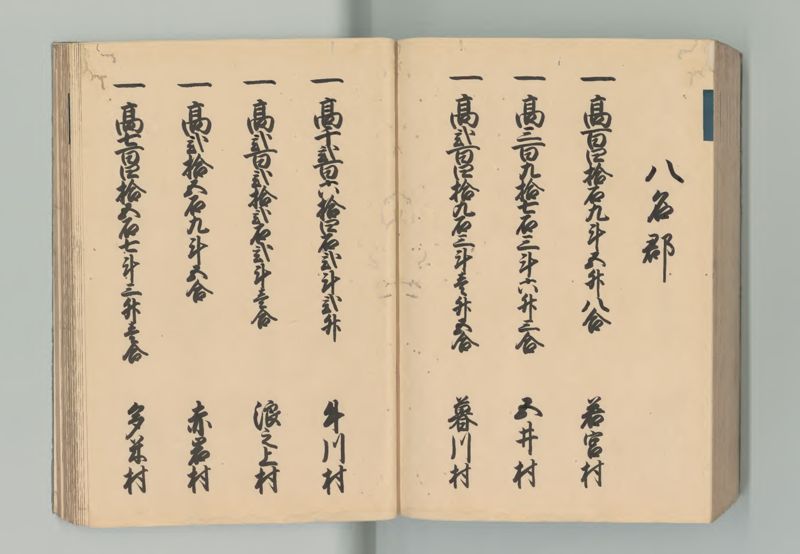 八名郡
一高百四拾石九斗五升八合　若宮村
一高三百九拾七石三斗六升三合　五井村
一高弐百四拾九石三斗壱升五合　暮川村
一高千弐百六拾四石弐斗弐升　牛川村
一高弐百弐拾弐石弐斗壱合　浪之上村
一高弐拾五石九斗五合　赤岩村
一高七百四拾五石七斗三升壱合　多米村